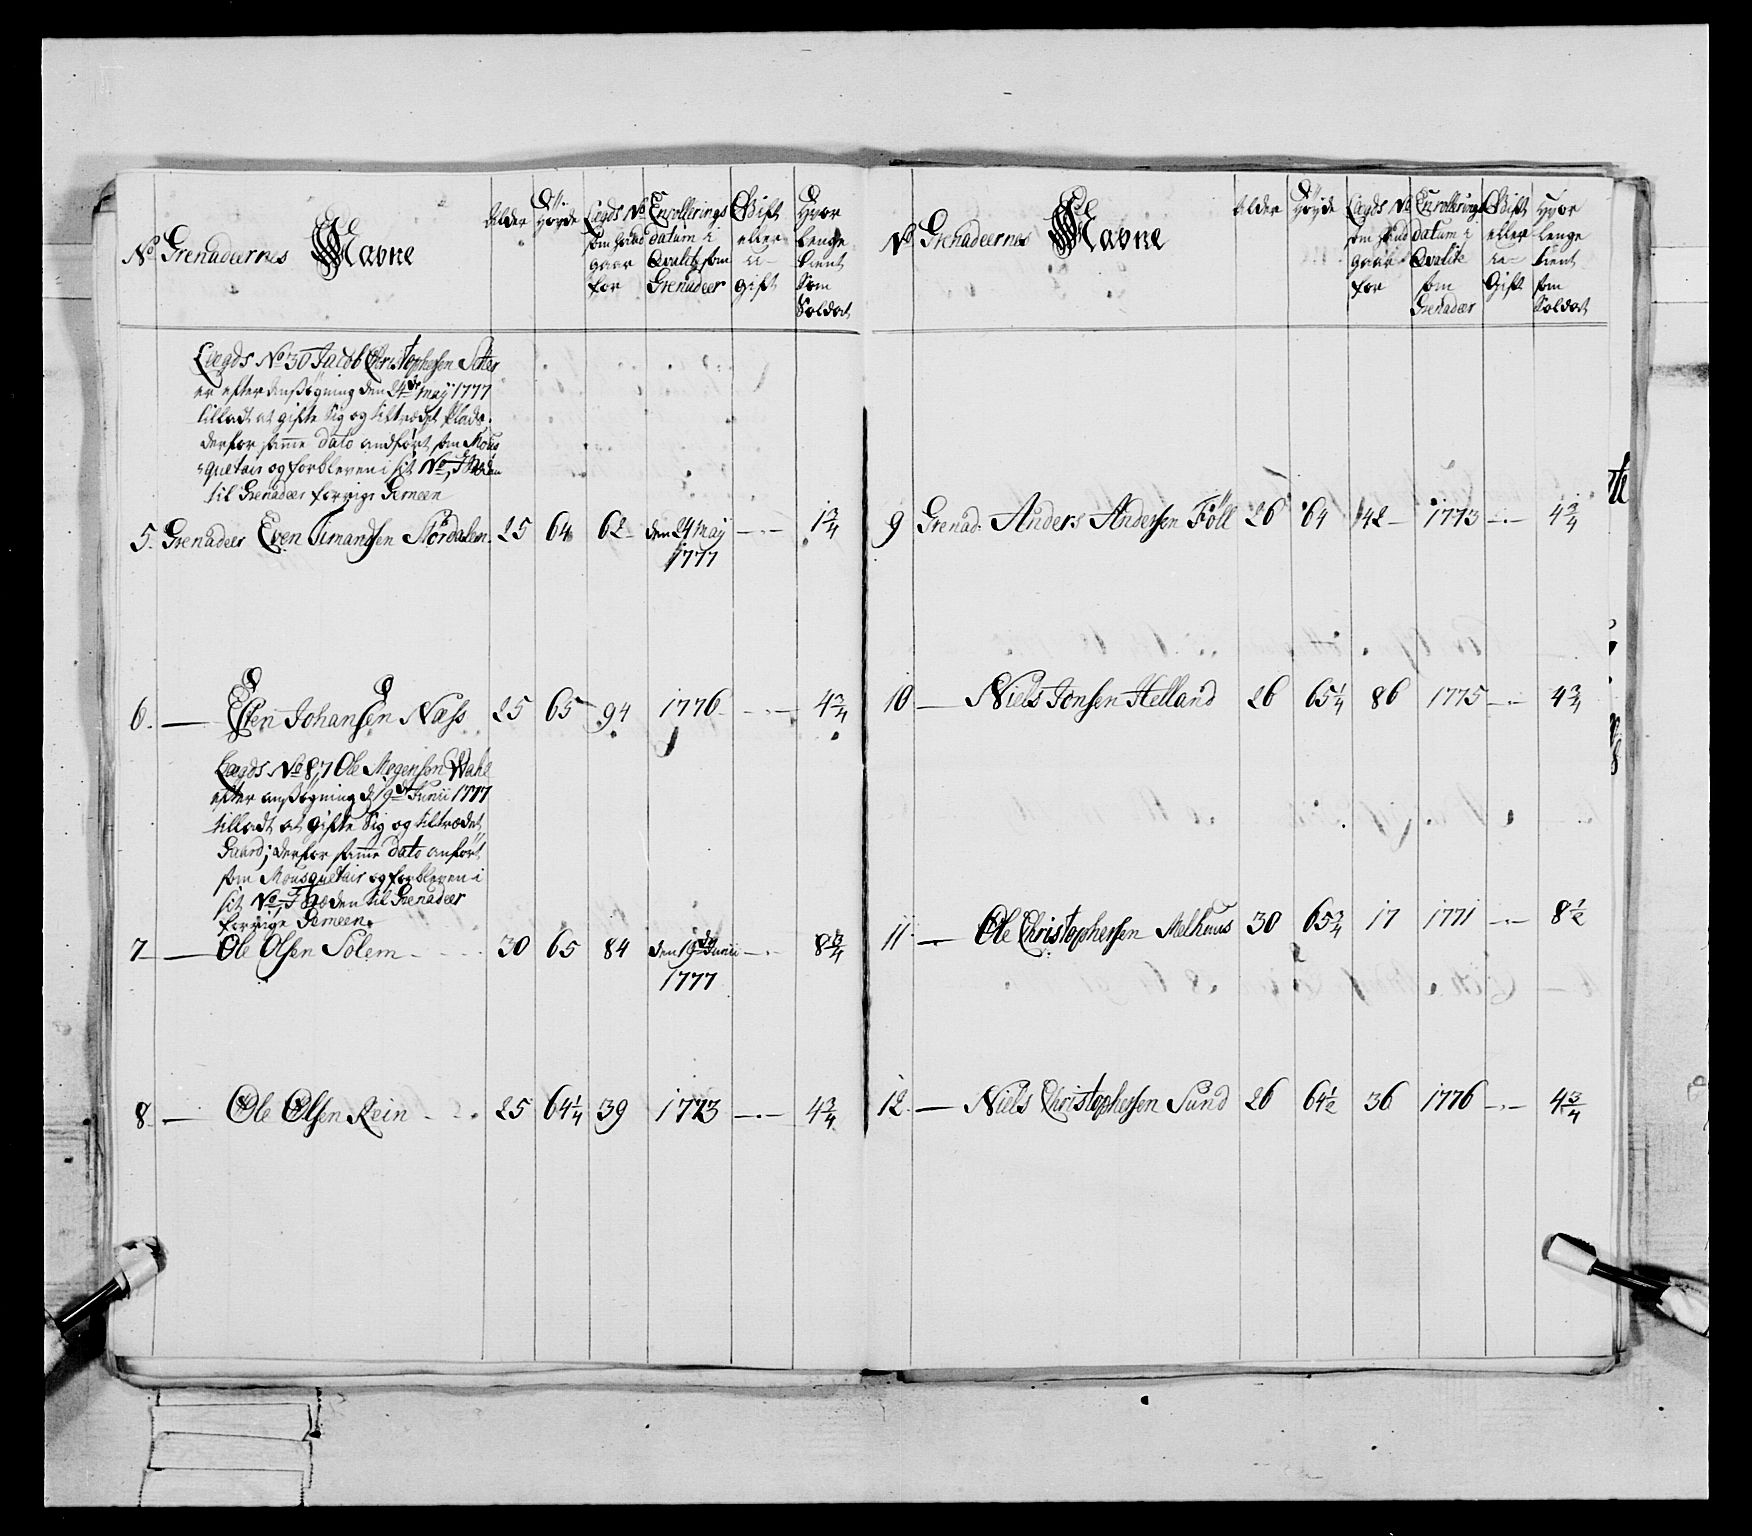 No. Grenadeernes Navne
Alder
Høyde
Lægds No som hand gaar for
Enrollerings datum i Qvalité som Grenadeer
Gift eller u- gift
Hvor lenge tient som Soldat
Lægds No 30 Jacob Christophersen Sæter
er efter ansøgning den 24de maij 1777
tilladt at gifte sig og tiltrædet Plads.
derfor samme dato andført som Mous
quetair og forbleven i sit No,
til Grenadeer forrige Gemeen
5. Grenadeer Even Simandsen Nordalem. 25 64 62 den 24 maij 1777 -.- 1 3/4
6. — Esten Johansen Næss 25 65 94 1776 -.- 4 3/4
Lægds No 87 Ole Mogensen Wahl
efter ansøgning d. 19de Junii 1777
tilladt at gifte sig og tiltrædet
Gaard; derfor samme dato anført
som Mousquetair og forbleven i
sit No, til Grenadeer
forrige Gemeen.
7 — Ole Olsen Solem 30 65 84 den 19de Junii 1777 -.- 8 3/4
8. — Ole Olsen Rein 25 64 1/4 39 1773 -.- 4 3/4
No Grenadeernes Navne
Alder
Høyde
Lægds No som hand gaar for
Enrollerings datum i Qvalité som Grenadeer
Gift eller u- Gift
Hvor lenge tient som Soldat
9 Grenad. Anders Andersen Föll 26 64 42 1773 -.- 4 3/4
10 — Niels Jonsen Helland 26 65 1/4 86 1775 -.- 4 3/4
11 — Ole Christophersen Melhuus 30 65 3/4 17 1771 -.- 8 1/2
12. — Niels Christophersen Sund 26 64 1/2 36 1776 -.- 4 3/4